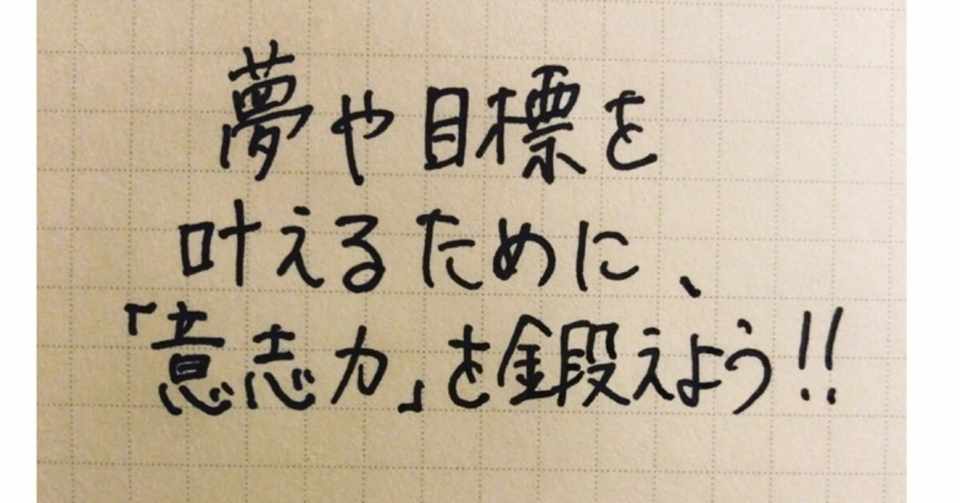 夢や目標を
叶えるために、
「意志力」を鍛えよう!!